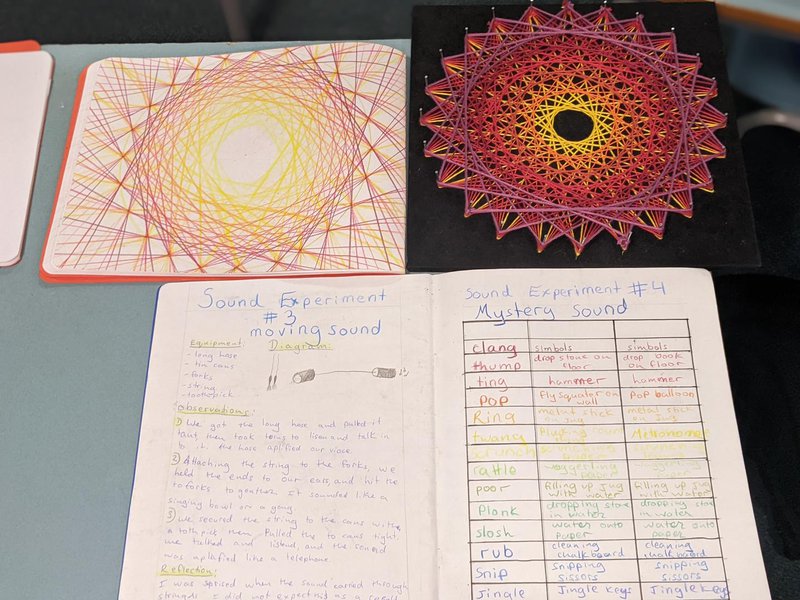 Sound Experiment
#3
moving sound
Equipment:
- long hose
- tin cans
- forks
- string
- toothpick
Diagram:
Observations:
1) We got the long hose and pulled it
taut then took terns to lisen and talk in
to it. the hose aplified our
2) Attaching the string to the forks, we
held the ends to our ears, and hit the
forks to gether. It sounded like a
singing bowl or a gong
3) we secured the string to the cans with
a tothpick then Pulled the to cans tight,
we talked and lisend, and the sound
was aplafied like a telephone.
Reflection:
I was when the sound carried through
string. I did not expect
Sound Experiment #4
Mystery Sound
clang simbols simbols
thump drop stone on floor drop book on floor
ting hammer hammer
POP Fly squator on wall POP balloon
Ring metal stick on jug metal stick on jug
twang Metronome
rattle
poor filling up jug with water filling up jug with water
Plonk dropping stone in water dropping stone in water
slosh water onto paper water onto paper
rub cleaning chalkboard cleaning chalkboard
Snip snipping sissors snipping sissors
Jingle Jingle keys Jingle keys